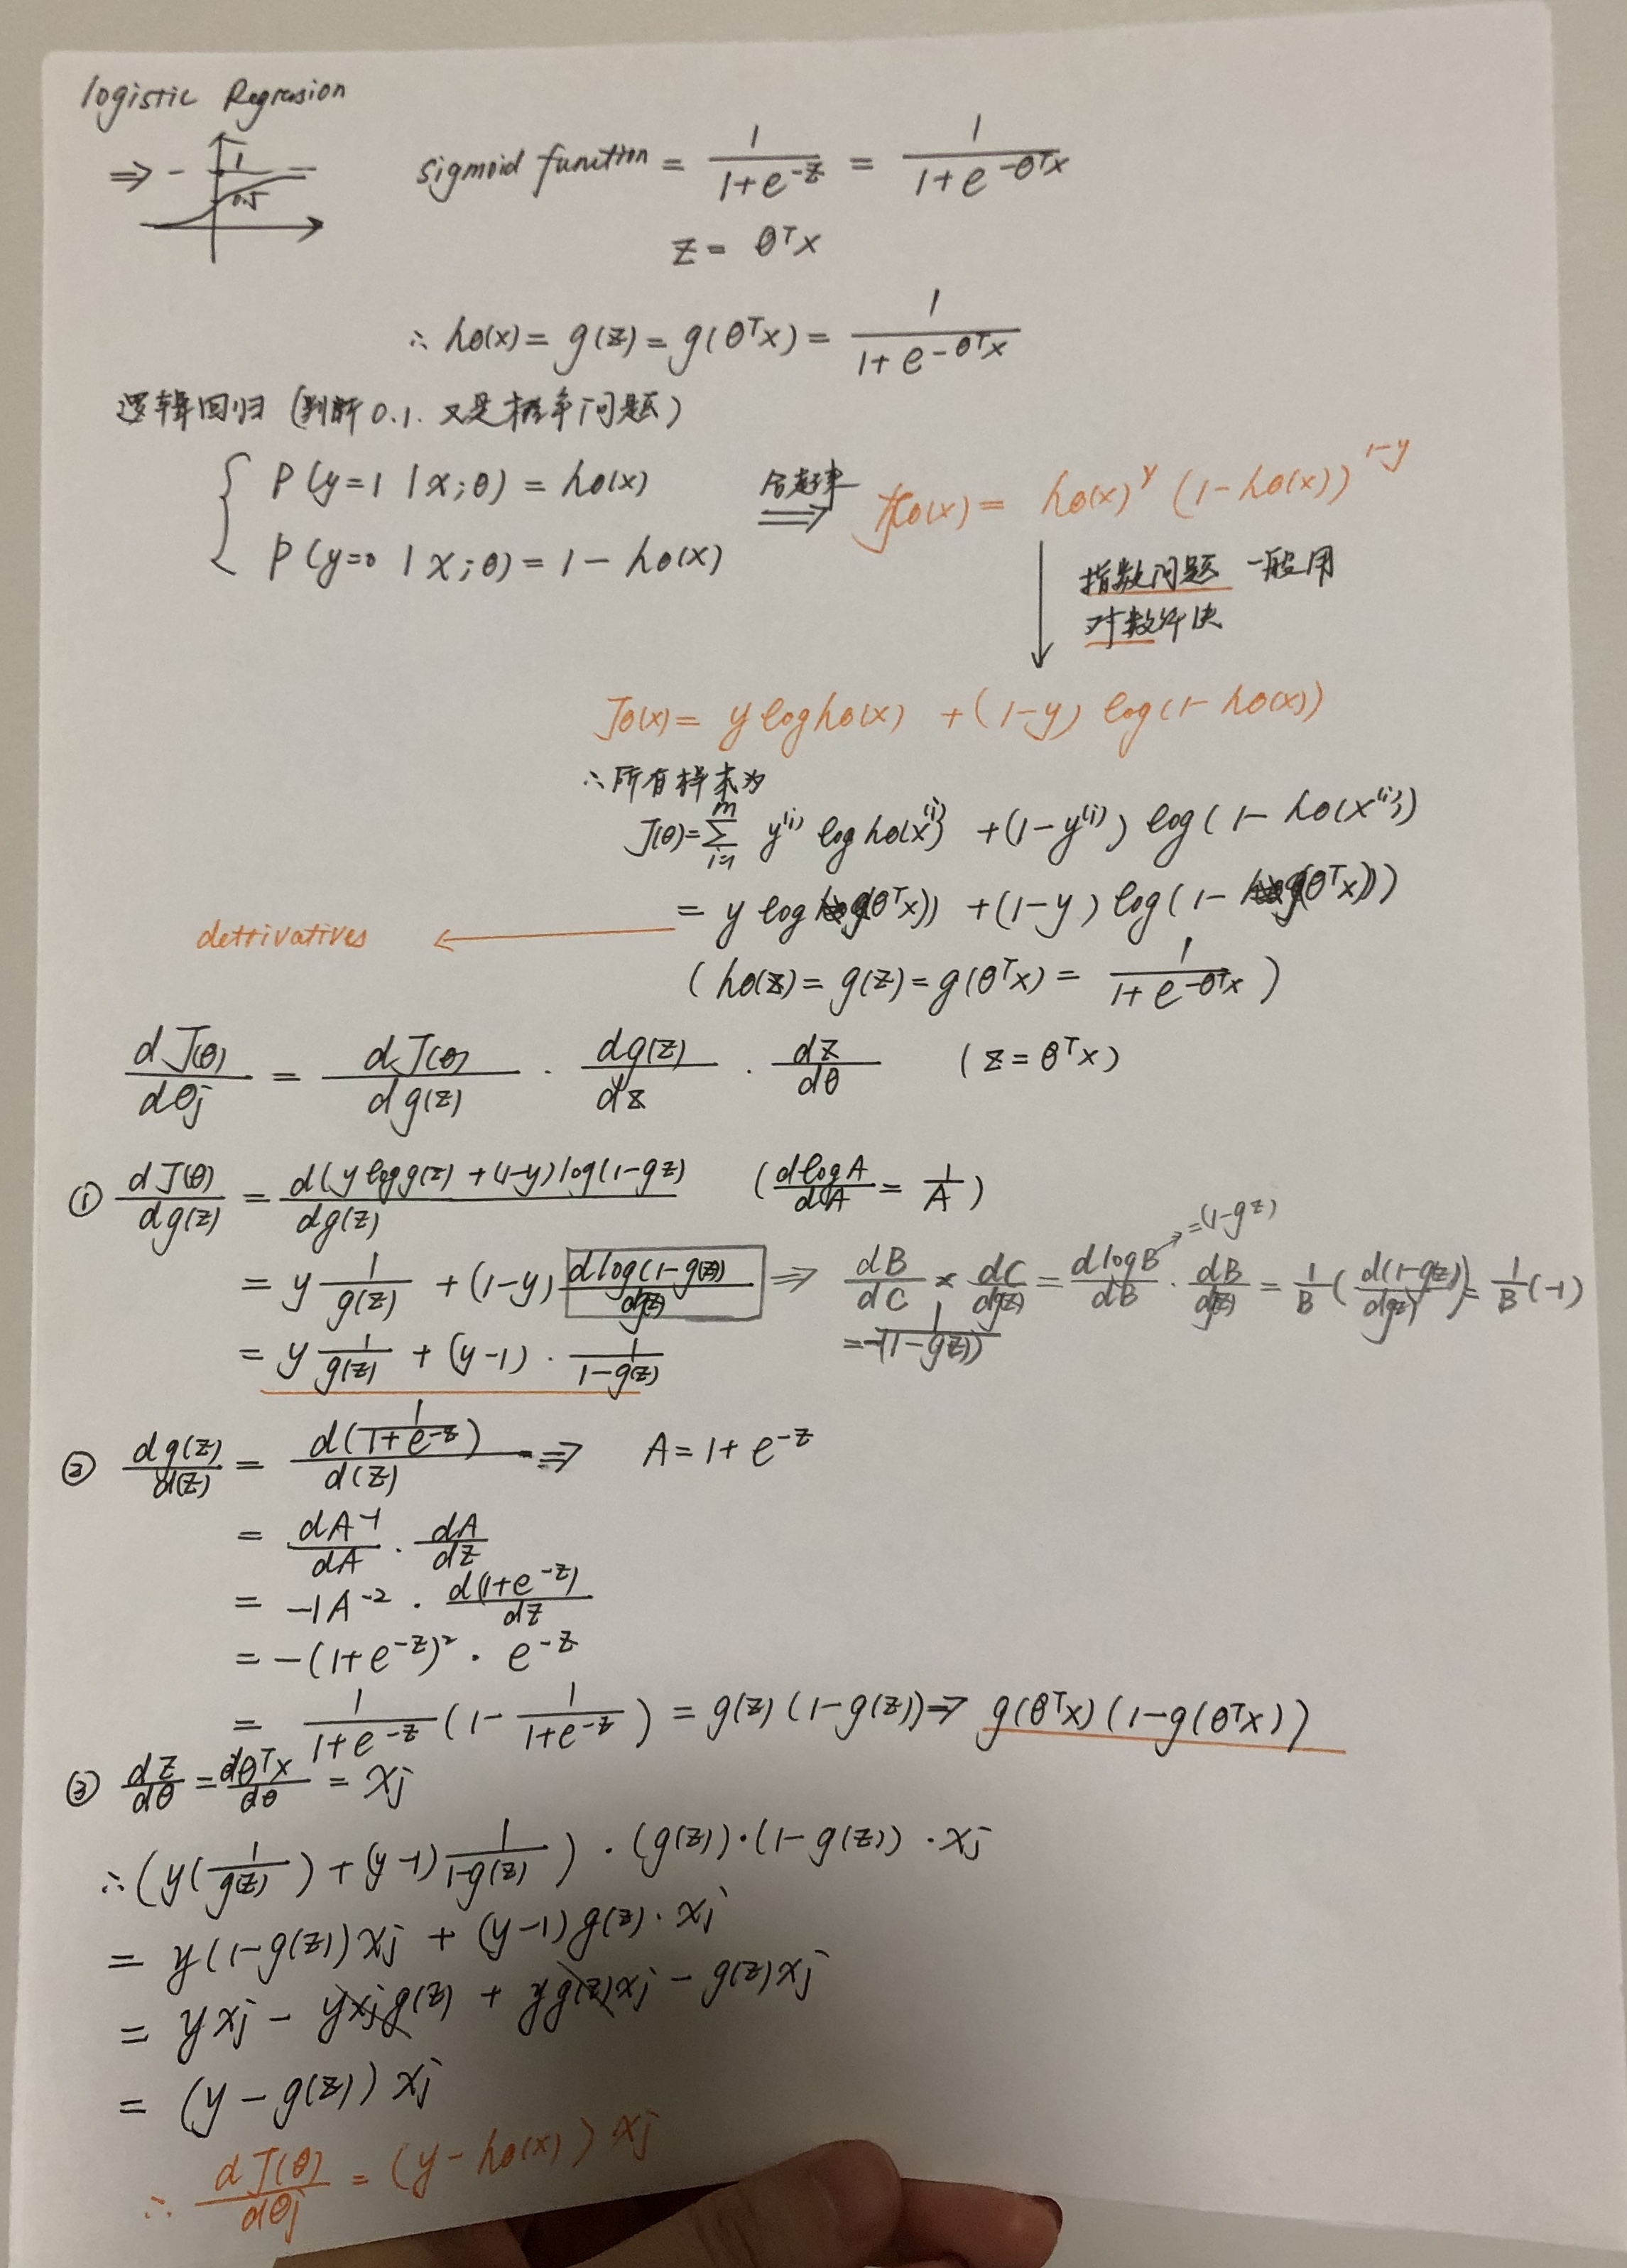 logistic Regression
⇒ 1 0.5
sigmoid function = 1/(1+e^-z) = 1/(1+e^-θᵀx)
z = θᵀx
∴ hθ(x) = g(z) = g(θᵀx) = 1/(1+e^-θᵀx)
逻辑回归 (判断0.1. 又是概率问题)
{ P(y=1 | x;θ) = hθ(x) 合起来 ⇒ fθ(x) = hθ(x)^y (1-hθ(x))^(1-y)
P(y=0 | x;θ) = 1 - hθ(x)
指数问题 一般用
对数解决
Jθ(x) = y log hθ(x) + (1-y) log(1-hθ(x))
∴ 所有样本为
J(θ) = Σ_{i=1}^m y^(i) log hθ(x^(i)) + (1-y^(i)) log(1-hθ(x^(i)))
= y log g(θᵀx)) + (1-y) log(1-g(θᵀx)))
dettivatives ←
(hθ(z) = g(z) = g(θᵀx) = 1/(1+e^-θᵀx))
dJ(θ)/dθj = dJ(θ)/dg(z) · dg(z)/dz · dz/dθ (z = θᵀx)
① dJ(θ)/dg(z) = d(y log g(z) + (1-y) log(1-gz)/dg(z) (dlogA/dA = 1/A)
= y 1/g(z) + (1-y) dlog(1-g(z))/dg(z) ⇒ dB/dC × dC/dg(z) = dlogB/dB · dB/dg(z) = 1/B (d(1-gz)/dgz) = 1/B (-1)
=(1-gz)
= y 1/g(z) + (y-1) · 1/(1-g(z)) = -1/(1-g(z))
② dg(z)/d(z) = d(1/(1+e^-z))/d(z) ⇒ A = 1+e^-z
= dA^-1/dA · dA/dz
= -1A^-2 · d(1+e^-z)/dz
= -(1+e^-z)² · e^-z
= 1/(1+e^-z) (1 - 1/(1+e^-z)) = g(z)(1-g(z)) ⇒ g(θᵀx)(1-g(θᵀx))
③ dz/dθ = dθᵀx/dθ = xj
∴ (y(1/g(z)) + (y-1) 1/(1-g(z))) · (g(z)) · (1-g(z)) · xj
= y(1-g(z))xj + (y-1)g(z)·xj
= yxj - yxjg(z) + yg(z)xj - g(z)xj
= (y-g(z))xj
∴ dJ(θ)/dθj = (y-hθ(x))xj